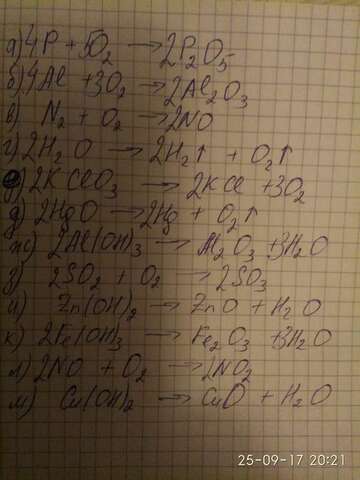 а) 4P + 5O₂ → 2P₂O₅
б) 4Al + 3O₂ → 2Al₂O₃
в) N₂ + O₂ → 2NO
г) 2H₂O → 2H₂↑ + O₂↑
2KClO₃ → 2KCl + 3O₂
д) 2HgO → 2Hg + O₂↑
ж) 2Al(OH)₃ → Al₂O₃ + 3H₂O
з) 2SO₂ + O₂ → 2SO₃
и) Zn(OH)₂ → ZnO + H₂O
к) 2Fe(OH)₃ → Fe₂O₃ + 3H₂O
л) 2NO + O₂ → 2NO₂
м) Cu(OH)₂ → CuO + H₂O
25-09-17 20:21